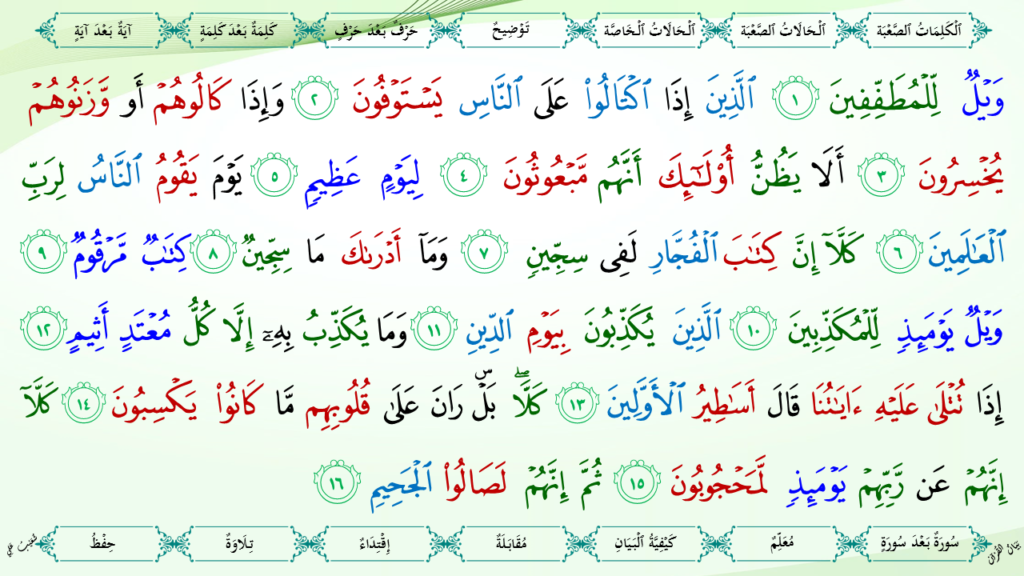 اَلْكَلِمَاتُ الصَّعْبَة اَلْحَالَاتُ الصَّعْبَة اَلْحَالَاتُ الْخَاصَّة تَوْضِيحٌ حَرْفٌ بَعْدَ حَرْفٍ كَلِمَةٌ بَعْدَ كَلِمَةٍ آيَةٌ بَعْدَ آيَةٍ
وَيْلٌ لِّلْمُطَفِّفِينَ ١ ٱلَّذِينَ إِذَا ٱكْتَالُوا۟ عَلَى ٱلنَّاسِ يَسْتَوْفُونَ ٢ وَإِذَا كَالُوهُمْ أَو وَّزَنُوهُمْ
يُخْسِرُونَ ٣ أَلَا يَظُنُّ أُو۟لَـٰٓئِكَ أَنَّهُم مَّبْعُوثُونَ ٤ لِيَوْمٍ عَظِيمٍ ٥ يَوْمَ يَقُومُ ٱلنَّاسُ لِرَبِّ
ٱلْعَـٰلَمِينَ ٦ كَلَّآ إِنَّ كِتَـٰبَ ٱلْفُجَّارِ لَفِى سِجِّينٍ ٧ وَمَآ أَدْرَىٰكَ مَا سِجِّينٌ ٨ كِتَـٰبٌ مَّرْقُومٌ ٩
وَيْلٌ يَوْمَئِذٍ لِّلْمُكَذِّبِينَ ١٠ ٱلَّذِينَ يُكَذِّبُونَ بِيَوْمِ ٱلدِّينِ ١١ وَمَا يُكَذِّبُ بِهِۦٓ إِلَّا كُلُّ مُعْتَدٍ أَثِيمٍ ١٢
إِذَا تُتْلَىٰ عَلَيْهِ ءَايَـٰتُنَا قَالَ أَسَـٰطِيرُ ٱلْأَوَّلِينَ ١٣ كَلَّا ۖ بَلْ ۜ رَانَ عَلَىٰ قُلُوبِهِم مَّا كَانُوا۟ يَكْسِبُونَ ١٤ كَلَّآ
إِنَّهُمْ عَن رَّبِّهِمْ يَوْمَئِذٍ لَّمَحْجُوبُونَ ١٥ ثُمَّ إِنَّهُمْ لَصَالُوا۟ ٱلْجَحِيمِ ١٦
بَيَانُ الْقُرْآن سُورَةٌ بَعْدَ سُورَةٍ مُعَلِّمٌ كَيْفِيَّةُ الْبَيَانِ مُقَابَلَةٌ إِقْتِدَاءٌ تِلَاوَةٌ حِفْظٌ